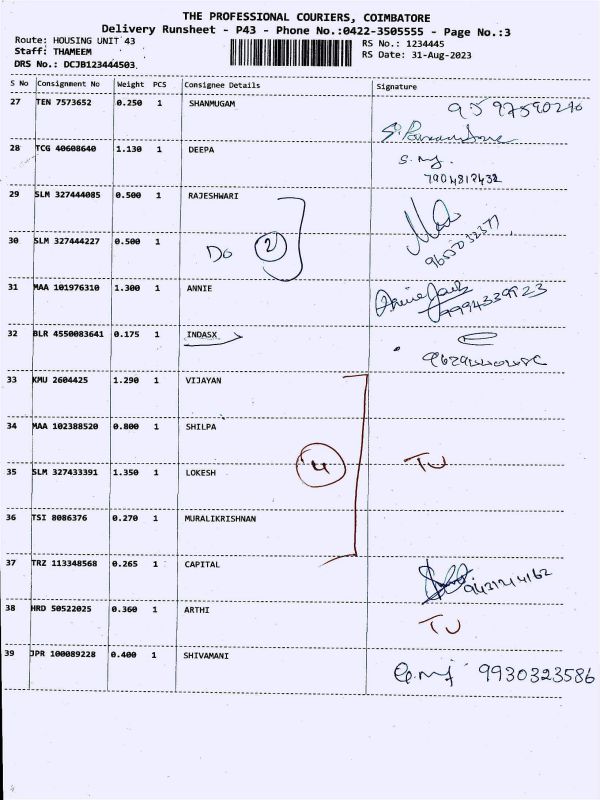 THE PROFESSIONAL COURIERS, COIMBATORE
Delivery Runsheet - P43 - Phone No.:0422-3505555 - Page No.:3
Route: HOUSING UNIT 43
Staff: THAMEEM
DRS No.: DCJB123444503
RS No.: 1234445
RS Date: 31-Aug-2023
S No Consignment No Weight PCS Consignee Details Signature
27 TEN 7573652 0.250 1 SHANMUGAM
28 TCG 40608640 1.130 1 DEEPA
7904817432
29 SLM 327444085 0.500 1 RAJESHWARI
30 SLM 327444227 0.500 1 Do 2
9655032377
31 MAA 101976310 1.300 1 ANNIE
9994339523
32 BLR 4550083641 0.175 1 INDASX
33 KMU 2604425 1.290 1 VIJAYAN
34 MAA 102388520 0.800 1 SHILPA
35 SLM 327433391 1.350 1 LOKESH 4 TU
36 TSI 8086376 0.270 1 MURALIKRISHNAN
37 TRZ 113348568 0.265 1 CAPITAL
38 HRD 50522025 0.360 1 ARTHI TU
39 JPR 100089228 0.400 1 SHIVAMANI
9930323586